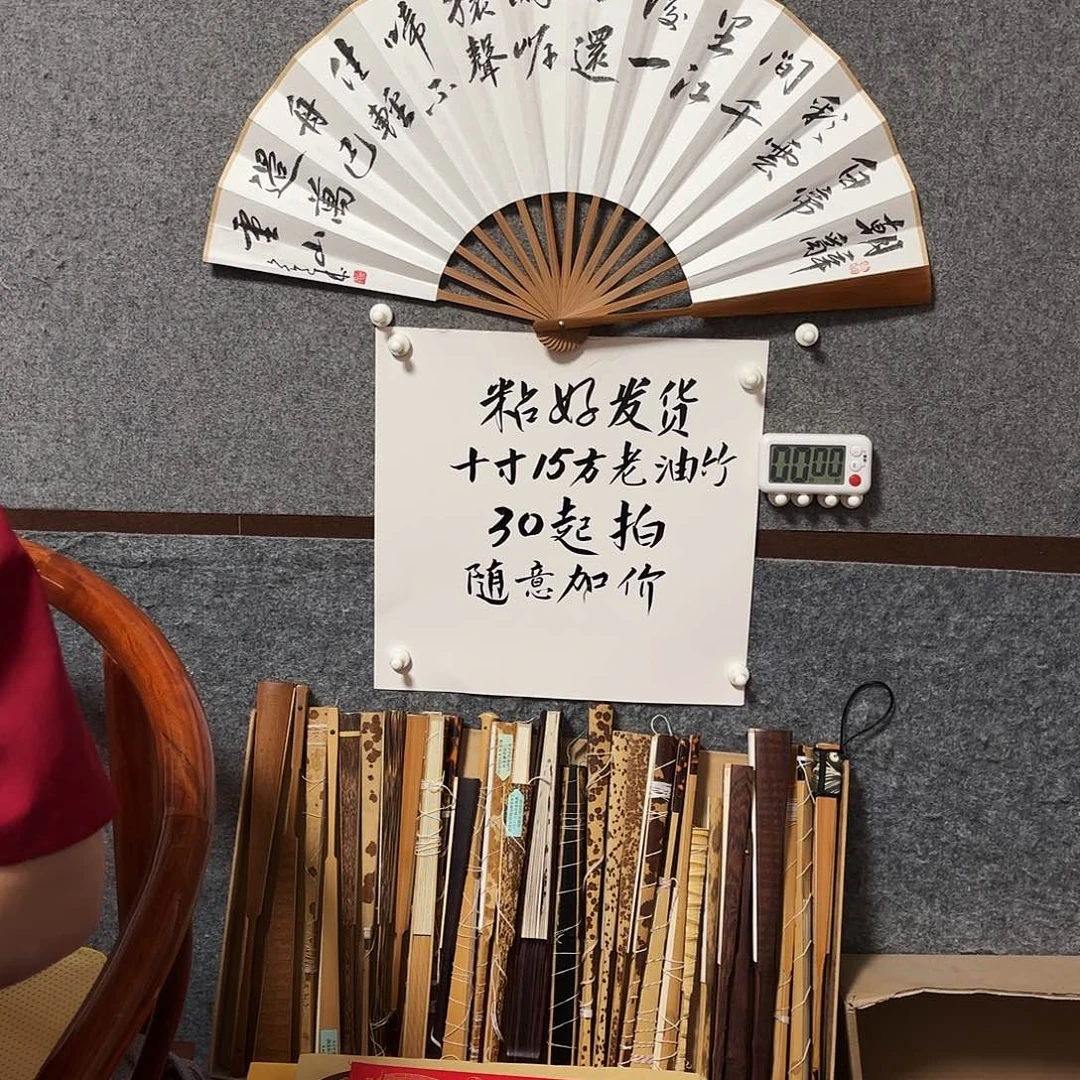 朝辭
白帝
彩雲
間千
里江
陵一
還
岸
猿聲
啼不
住輕
舟已
過萬
重山
粘好发货
十寸15方老油竹
30起拍
随意加价
00:00